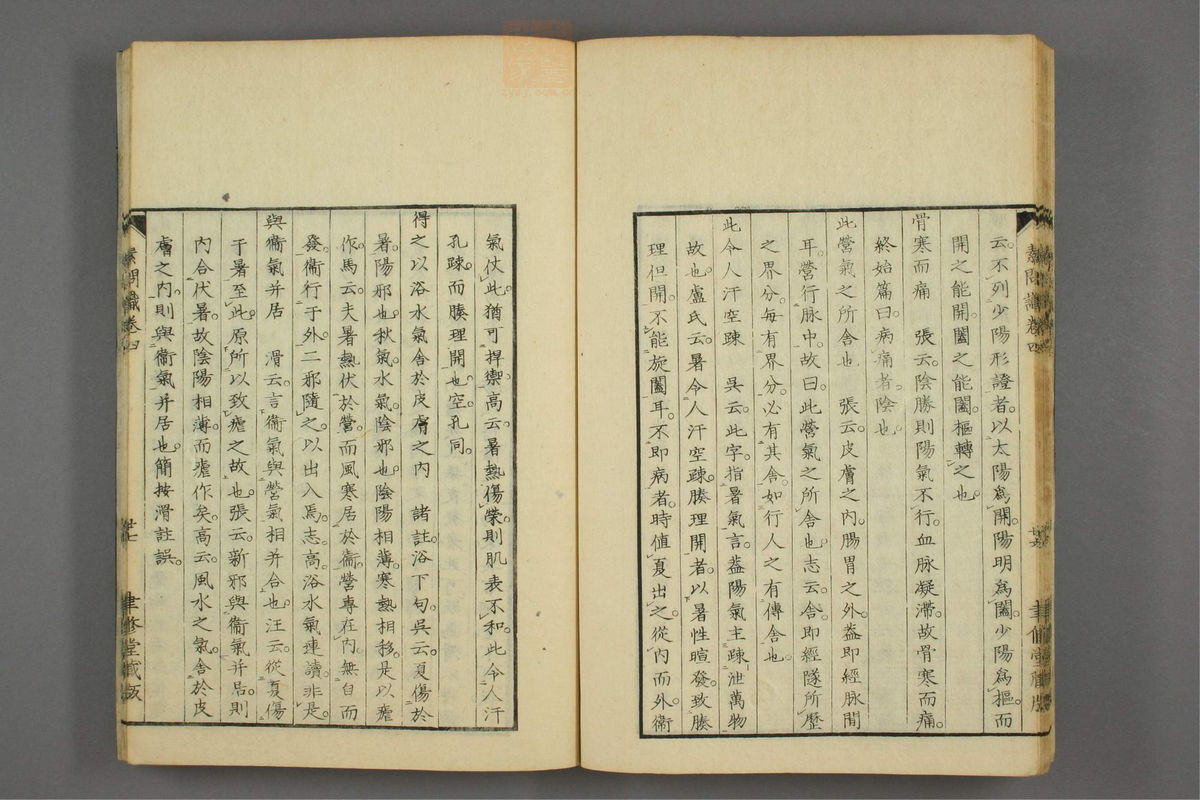 云。不列少陽形證者。以太陽爲開。陽明爲闔。少陽爲樞。而
開之能開。闔之能闔。樞轉之也。
骨寒而痛　張云。陰勝則陽氣不行。血脉凝滯。故骨寒而痛。
終始篇曰。病痛者。陰也。
此營氣之所舍也　張云。皮膚之內。腸胃之外。蓋即經脉間
耳。營行脉中。故曰此營氣之所舍也。志云。舍即經隧所歷
之界分。每有界分。必有其舍。如行人之有傳舍也。
此令人汗空疎　吳云。此字指暑氣言。蓋陽氣主疎泄萬物
故也。盧氏云。暑令人汗空疎。腠理開者。以暑性暄發。致腠
理但開。不能旋闔耳。不即病者。時值夏出之。從內而外。衞
氣仗此。猶可捍禦。高云。暑熱傷榮。則肌表不和。此令人汗
孔疎。而腠理開也。空孔同。
得之以浴水氣舍於皮膚之內　諸註。浴下句。吳云。夏傷於
暑。陽邪也。秋氣水氣。陰邪也。陰陽相薄。寒熱相移。是以瘧
作。馬云。夫暑熱伏於營。而風寒居於衞。營專在內。無自而
發。衞行于外。二邪隨之以出入焉。志高。浴水氣連讀。非是。
與衞氣并居　滑云。言衞氣與營氣相并合也。汪云。從夏傷
于暑至此。原所以致瘧之故也。張云。新邪與衞氣并居。則
內合伏暑。故陰陽相薄。而瘧作矣。高云。風水之氣。舍於皮
膚之內。則與衞氣并居也。簡按滑註誤。
素問識卷四
廿六
聿修堂藏版
素問識卷四
廿七
聿修堂藏版